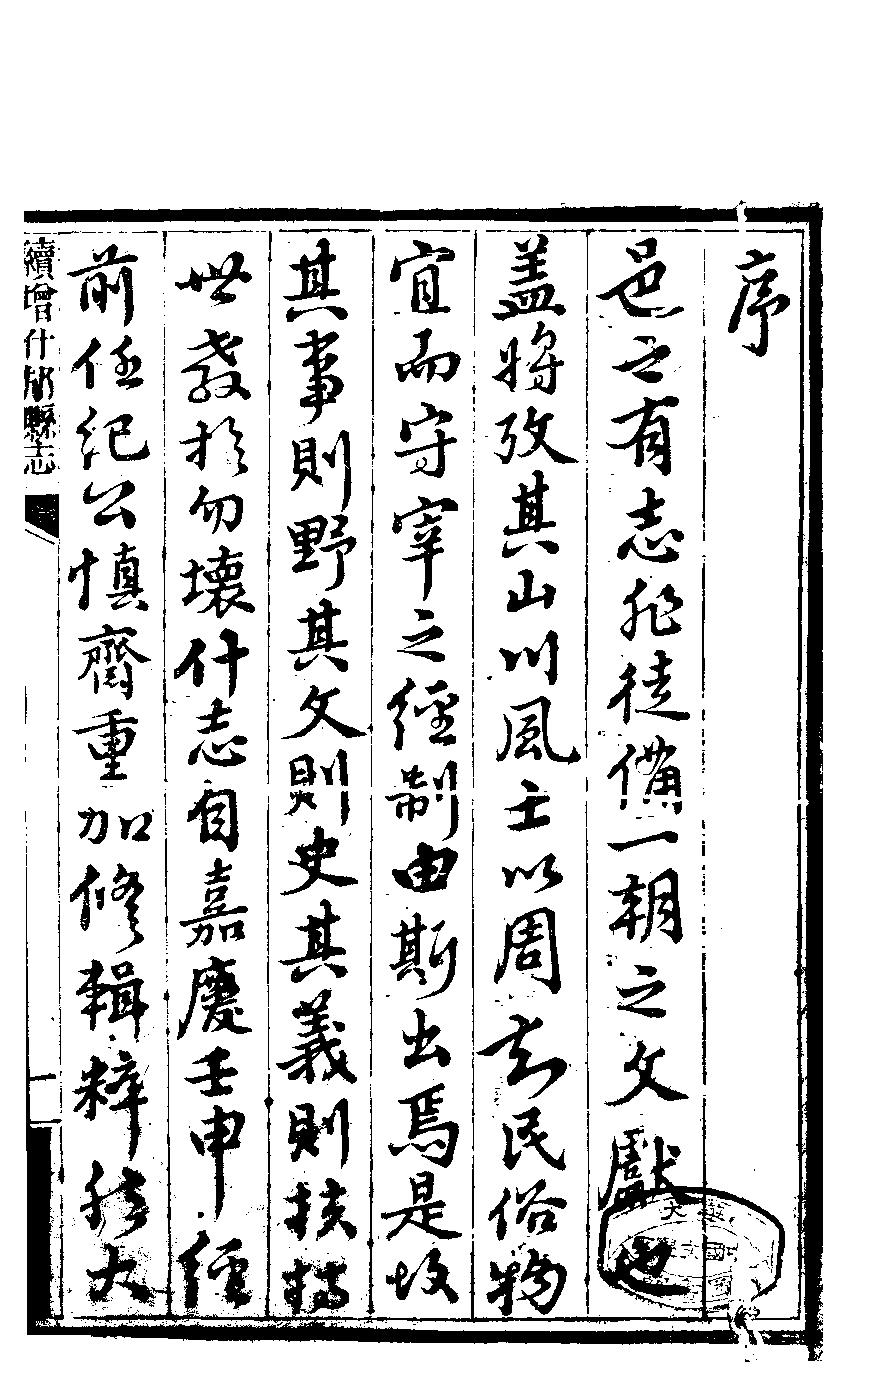 序
邑之有志非徒備一朝之文獻也
盖將攷其山川風土以周知民俗物
宜而守宰之經制由斯出焉是故
其事則野其文則史其義則扶持
世教於勿壞什志自嘉慶壬申經
前任紀公慎齋重加修輯粹然大
續增什邡縣志